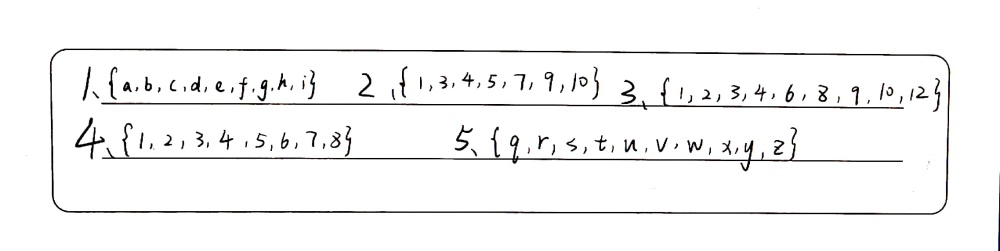 1、{a,b,c,d,e,f,g,h,i} 2、{1,3,4,5,7,9,10} 3、{1,2,3,4,6,8,9,10,12}
4、{1,2,3,4,5,6,7,8} 5、{q,r,s,t,u,v,w,x,y,z}